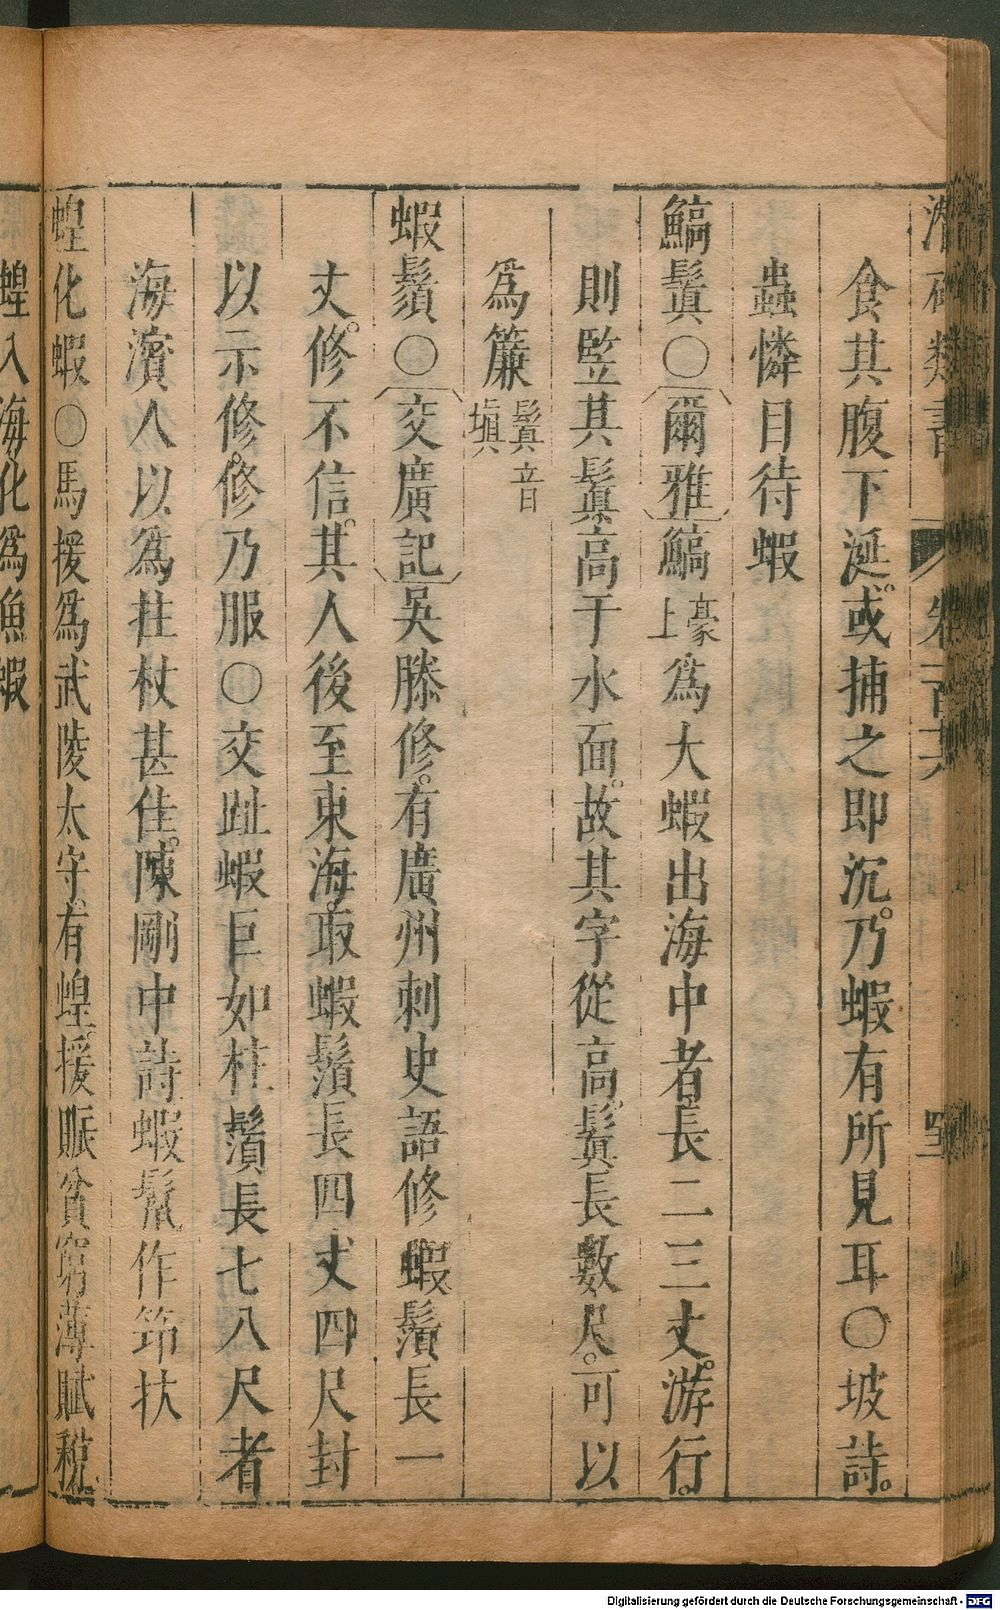 潛確類書 卷一百十六 四
食其腹下涎。或捕之即沉。乃蝦有所見耳○坡詩。
蟲憐目待蝦
鰝鬚○爾雅鰝豪上為大蝦出海中者。長二三丈。游行。
則竪其鬚高于水面。故其字從高。鬚長數尺。可以
為簾鬚音塡
蝦鬚○交廣記吳滕修。有廣州刺史語修蝦鬚長一
丈。修不信。其人後至東海。取蝦鬚長四丈四尺封
以示修。修乃服○交趾蝦巨如柱鬚長七八尺者
海濱人以為拄杖甚佳。陳剛中詩蝦鬚作笻扶
蝗化蝦○馬援為武陵太守。有蝗。援賑貧窮薄賦稅
蝗入海化為魚蝦
Digitalisierung gefördert durch die Deutsche Forschungsgemeinschaft - DFG